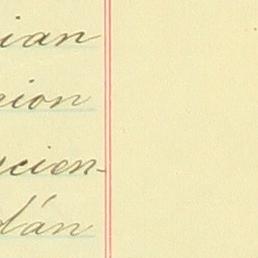 ian
cion
cien-
dán